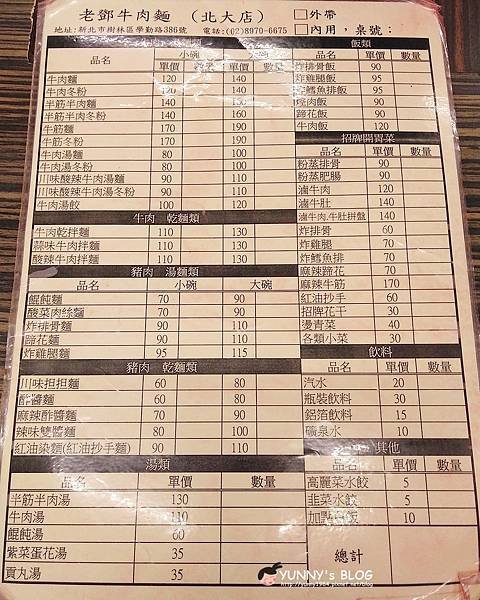 老鄧牛肉麵 (北大店)
□外帶
地址:新北市樹林區學勤路386號 電話:(02)8970-6675
□內用，桌號:
品名 小碗 大碗
單價 數量 單價 數量
牛肉麵 120 140
牛肉冬粉 120 140
半筋半肉麵 140 160
半筋半肉冬粉 140 160
牛筋麵 170 190
牛筋冬粉 170 190
牛肉湯麵 80 100
牛肉湯冬粉 80 100
川味酸辣牛肉湯麵 90 110
川味酸辣牛肉湯冬粉 90 110
牛肉湯餃 100 120
牛肉 乾麵類
牛肉乾拌麵 110 130
蒜味牛肉拌麵 110 130
酸辣牛肉拌麵 110 130
豬肉 湯麵類
品名 小碗 大碗
餛飩麵 70 90
酸菜肉絲麵 70 90
炸排骨麵 90 110
蹄花麵 90 110
炸雞腿麵 95 115
豬肉 乾麵類
川味担担麵 60 80
酢醬麵 60 80
麻辣酢醬麵 70 90
辣味雙醬麵 80 100
紅油染麵(紅油抄手麵) 90 110
湯類
品名 單價 數量
半筋半肉湯 130
牛肉湯 110
餛飩湯 60
紫菜蛋花湯 35
貢丸湯 35
飯類
品名 單價 數量
炸排骨飯 90
炸雞腿飯 95
炸鱈魚排飯 95
焢肉飯 90
蹄花飯 90
牛肉飯 120
招牌開胃菜
品名 單價 數量
粉蒸排骨 90
粉蒸肥腸 90
滷牛肉 120
滷牛肚 140
滷牛肉.牛肚拼盤 140
炸排骨 60
炸雞腿 70
炸鱈魚排 70
麻辣蹄花 70
麻辣牛筋 170
紅油抄手 60
招牌花干 30
燙青菜 40
各類小菜 30
飲料
品名 單價 數量
汽水 20
瓶裝飲料 30
鋁箔飲料 15
礦泉水 10
其他
品名 單價 數量
高麗菜水餃 5
韭菜水餃 5
加點白飯 10
總計
YUNNY's BLOG